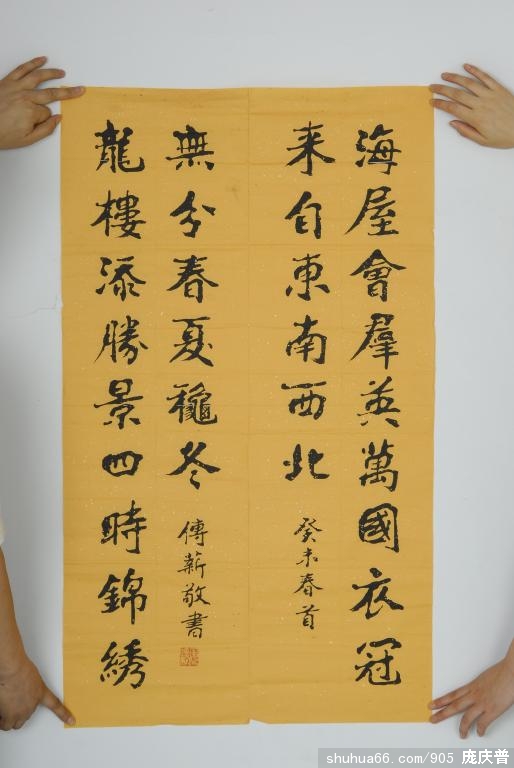 海屋會羣英萬國衣冠
来自東南西北
癸未春首
龍樓添勝景四時錦綉
無分春夏龝冬
傳薪敬書
shuhua66.com/905 庞庆普